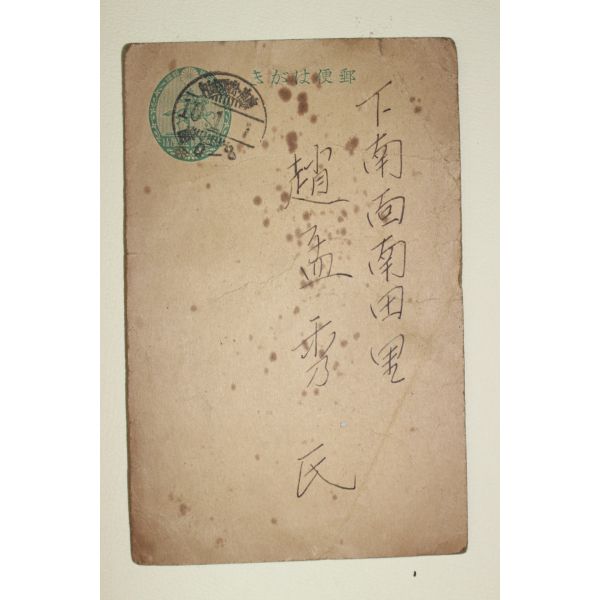 郵便はがき
下南面南田里
趙孟秀氏